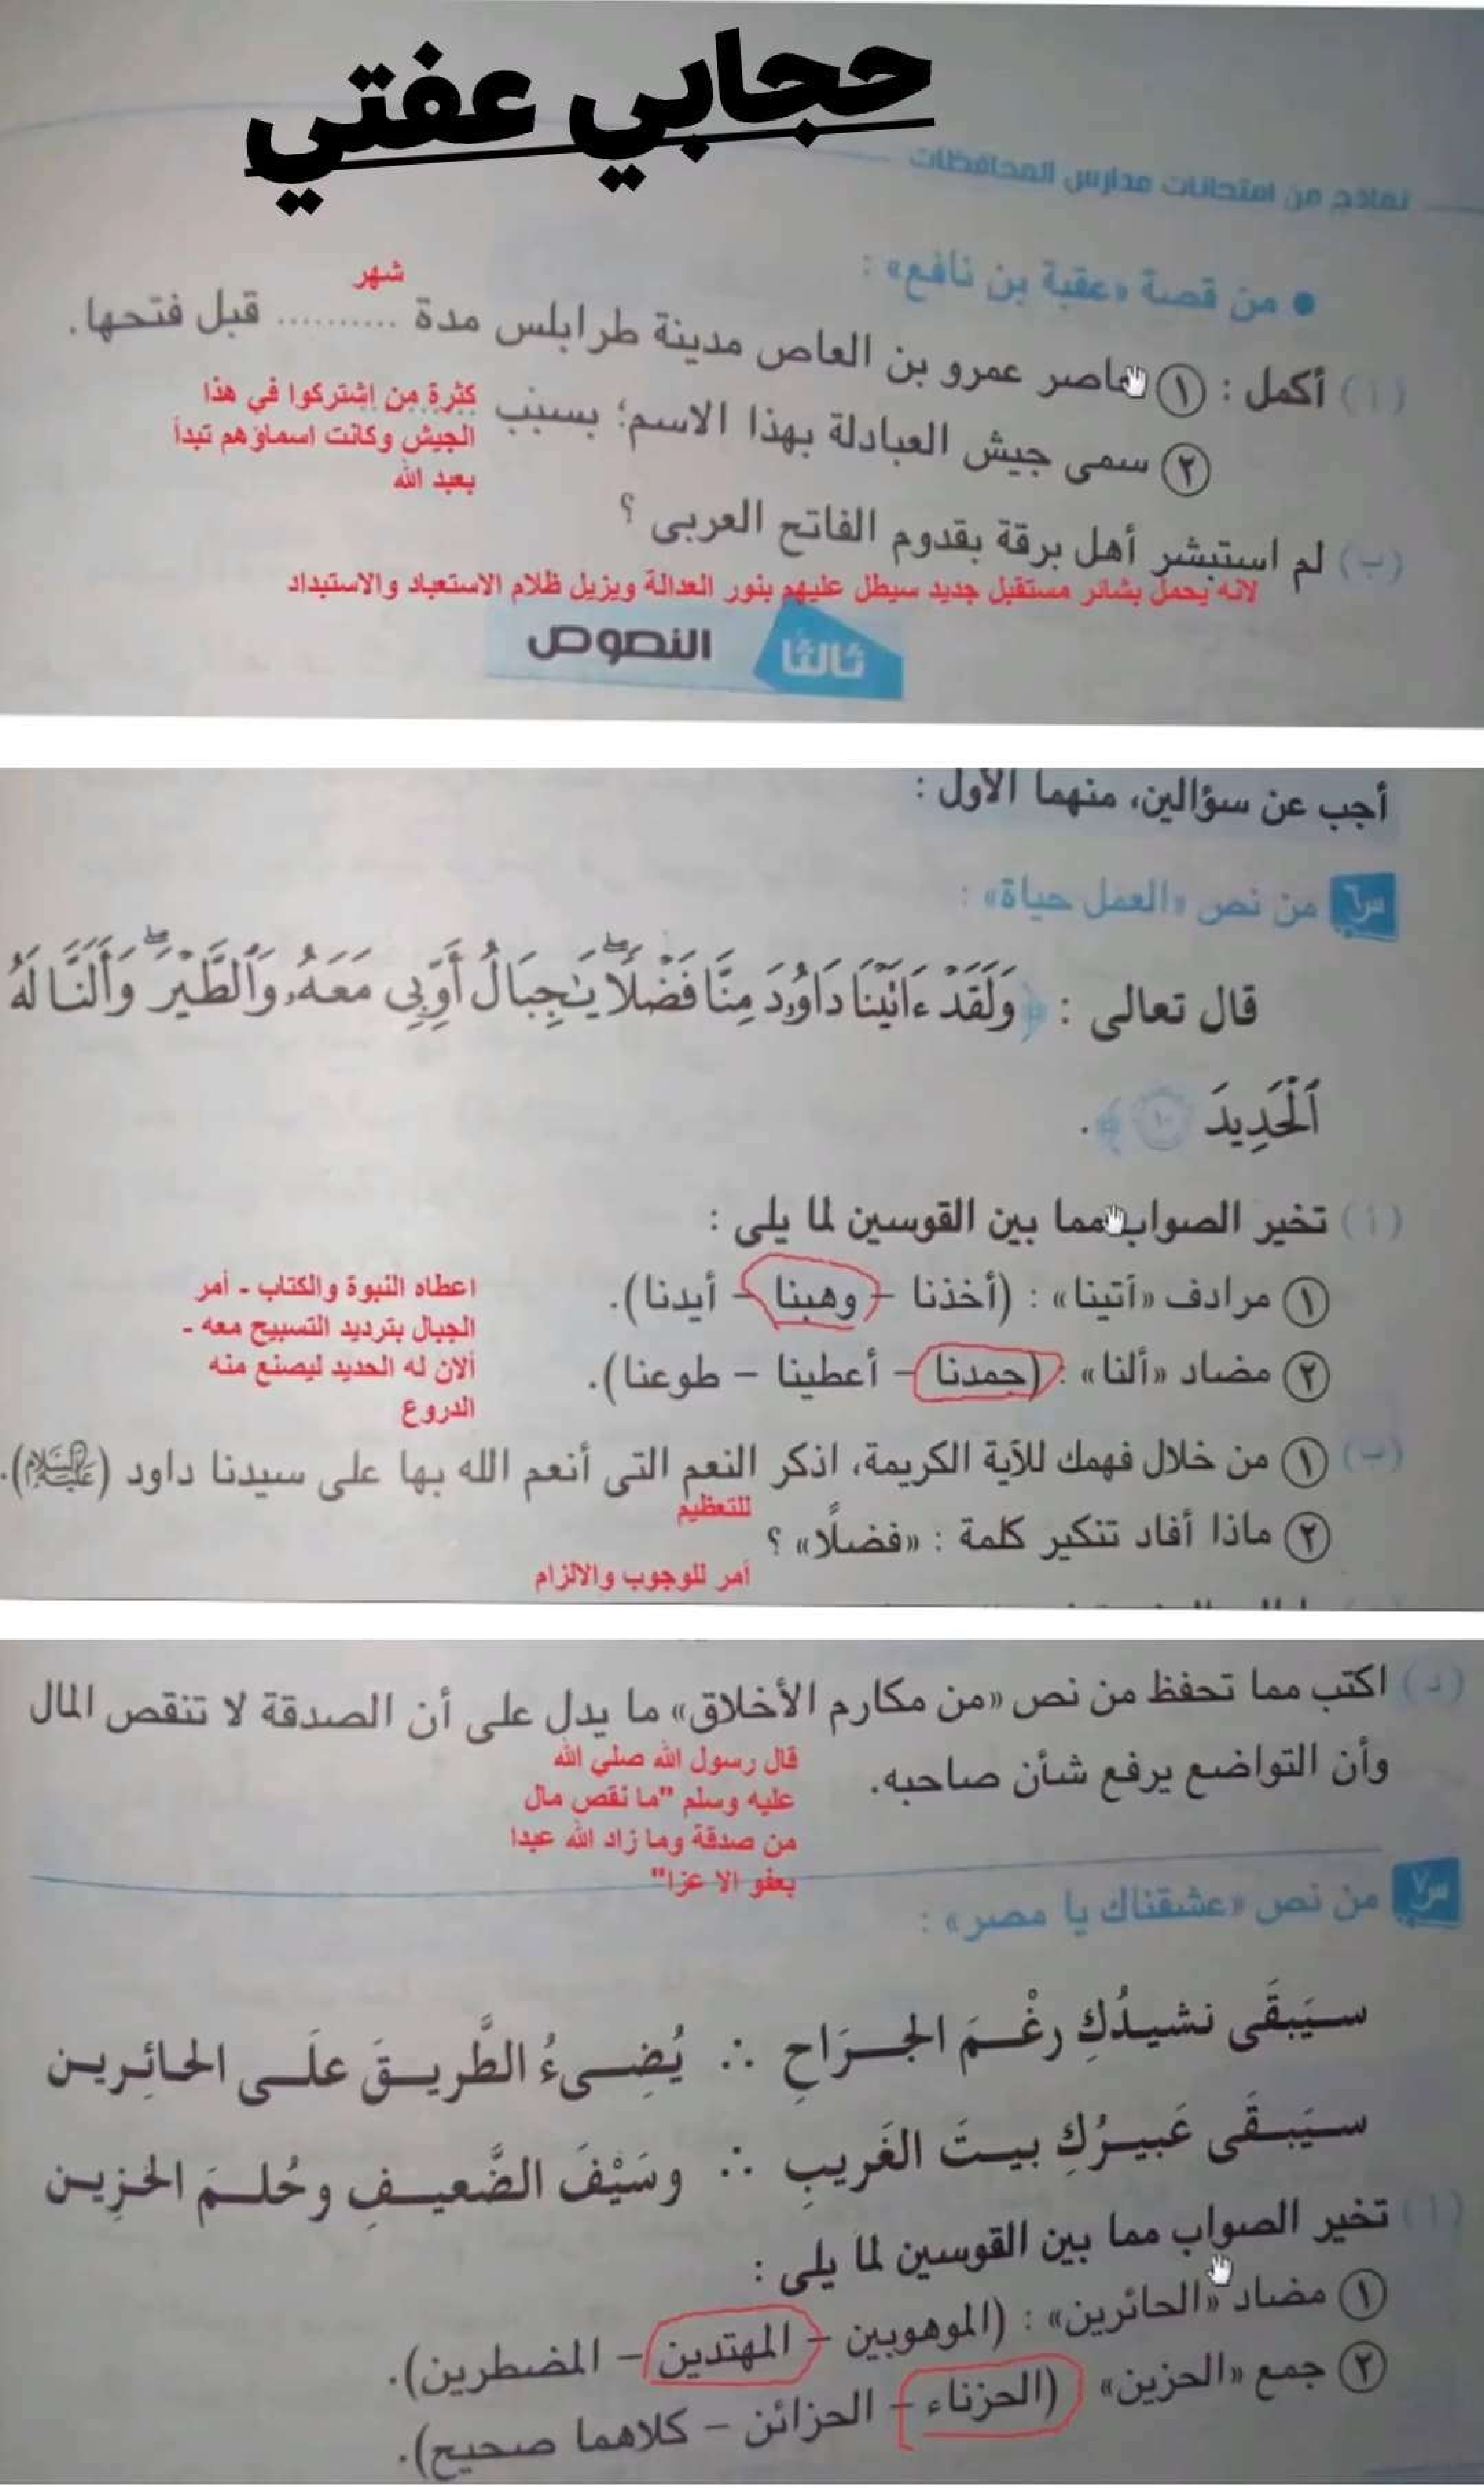 حجابي عفتي
نماذج من امتحانات مدارس المحافظات
● من قصة «عقبة بن نافع» :
شهر
(أ) أكمل : ① حاصر عمرو بن العاص مدينة طرابلس مدة .......... قبل فتحها.
② سمى جيش العبادلة بهذا الاسم؛ بسبب
كثرة من إشتركوا في هذا
الجيش وكانت اسماؤهم تبدأ
بعبد الله
(ب) لم استبشر أهل برقة بقدوم الفاتح العربى ؟
لانه يحمل بشائر مستقبل جديد سيطل عليهم بنور العدالة ويزيل ظلام الاستعباد والاستبداد
ثالثًا النصوص
أجب عن سؤالين، منهما الأول :
س٦ من نص «العمل حياة» :
قال تعالى : ﴿ وَلَقَدْ ءَاتَيْنَا دَاوُۥدَ مِنَّا فَضْلًا ۖ يَٰجِبَالُ أَوِّبِى مَعَهُۥ وَٱلطَّيْرَ ۖ وَأَلَنَّا لَهُ
ٱلْحَدِيدَ ١٠ ﴾ .
(أ) تخير الصواب مما بين القوسين لما يلى :
① مرادف «آتينا» : (أخذنا – وهبنا – أيدنا).
② مضاد «ألنا» : (جمدنا – أعطينا – طوعنا).
اعطاه النبوة والكتاب - أمر
الجبال بترديد التسبيح معه -
ألان له الحديد ليصنع منه
الدروع
(ب) ① من خلال فهمك للآية الكريمة، اذكر النعم التى أنعم الله بها على سيدنا داود (عَلَيْهِ السَّلَام).
للتعظيم
② ماذا أفاد تنكير كلمة : «فضلًا» ؟
أمر للوجوب والالزام
(د) اكتب مما تحفظ من نص «من مكارم الأخلاق» ما يدل على أن الصدقة لا تنقص المال
وأن التواضع يرفع شأن صاحبه.
قال رسول الله صلي الله
عليه وسلم "ما نقص مال
من صدقة وما زاد الله عبدا
بعفو الا عزا"
س٧ من نص «عشقناك يا مصر» :
سـيَبـقَى نشيـدُكِ رغْـمَ الجـرَاحِ ∴ يُضِـىءُ الطَّريـقَ علَـى الحائِريـن
سـيَبـقَى عَبيـرُكِ بيـتَ الغَريبِ ∴ وسَيْفَ الضَّعيـفِ وحُلـمَ الحَزِين
(أ) تخير الصواب مما بين القوسين لما يلى :
① مضاد «الحائرين» : (الموهوبين – المهتدين – المضطرين).
② جمع «الحزين» (الحزناء – الحزائن – كلاهما صحيح).